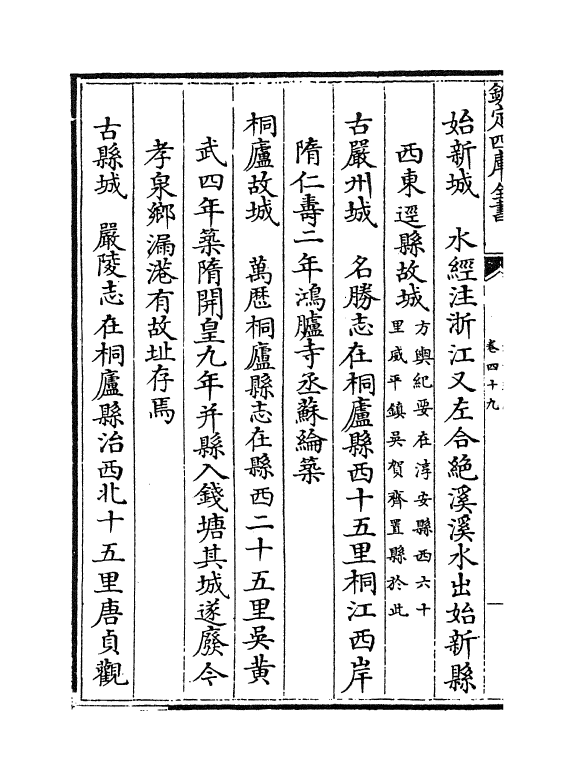 欽定四庫全書
卷四十九
始新城　水經注浙江又左合絶溪溪水出始新縣
西東逕縣故城方輿紀要在淳安縣西六十
里威平鎮吳賀齊置縣於此
古嚴州城　名勝志在桐廬縣西十五里桐江西岸
隋仁壽二年鴻臚寺丞蘇綸築
桐廬故城　萬歷桐廬縣志在縣西二十五里吳黃
武四年築隋開皇九年并縣入錢塘其城遂廢今
孝泉鄉漏港有故址存焉
古縣城　嚴陵志在桐廬縣治西北十五里唐貞觀